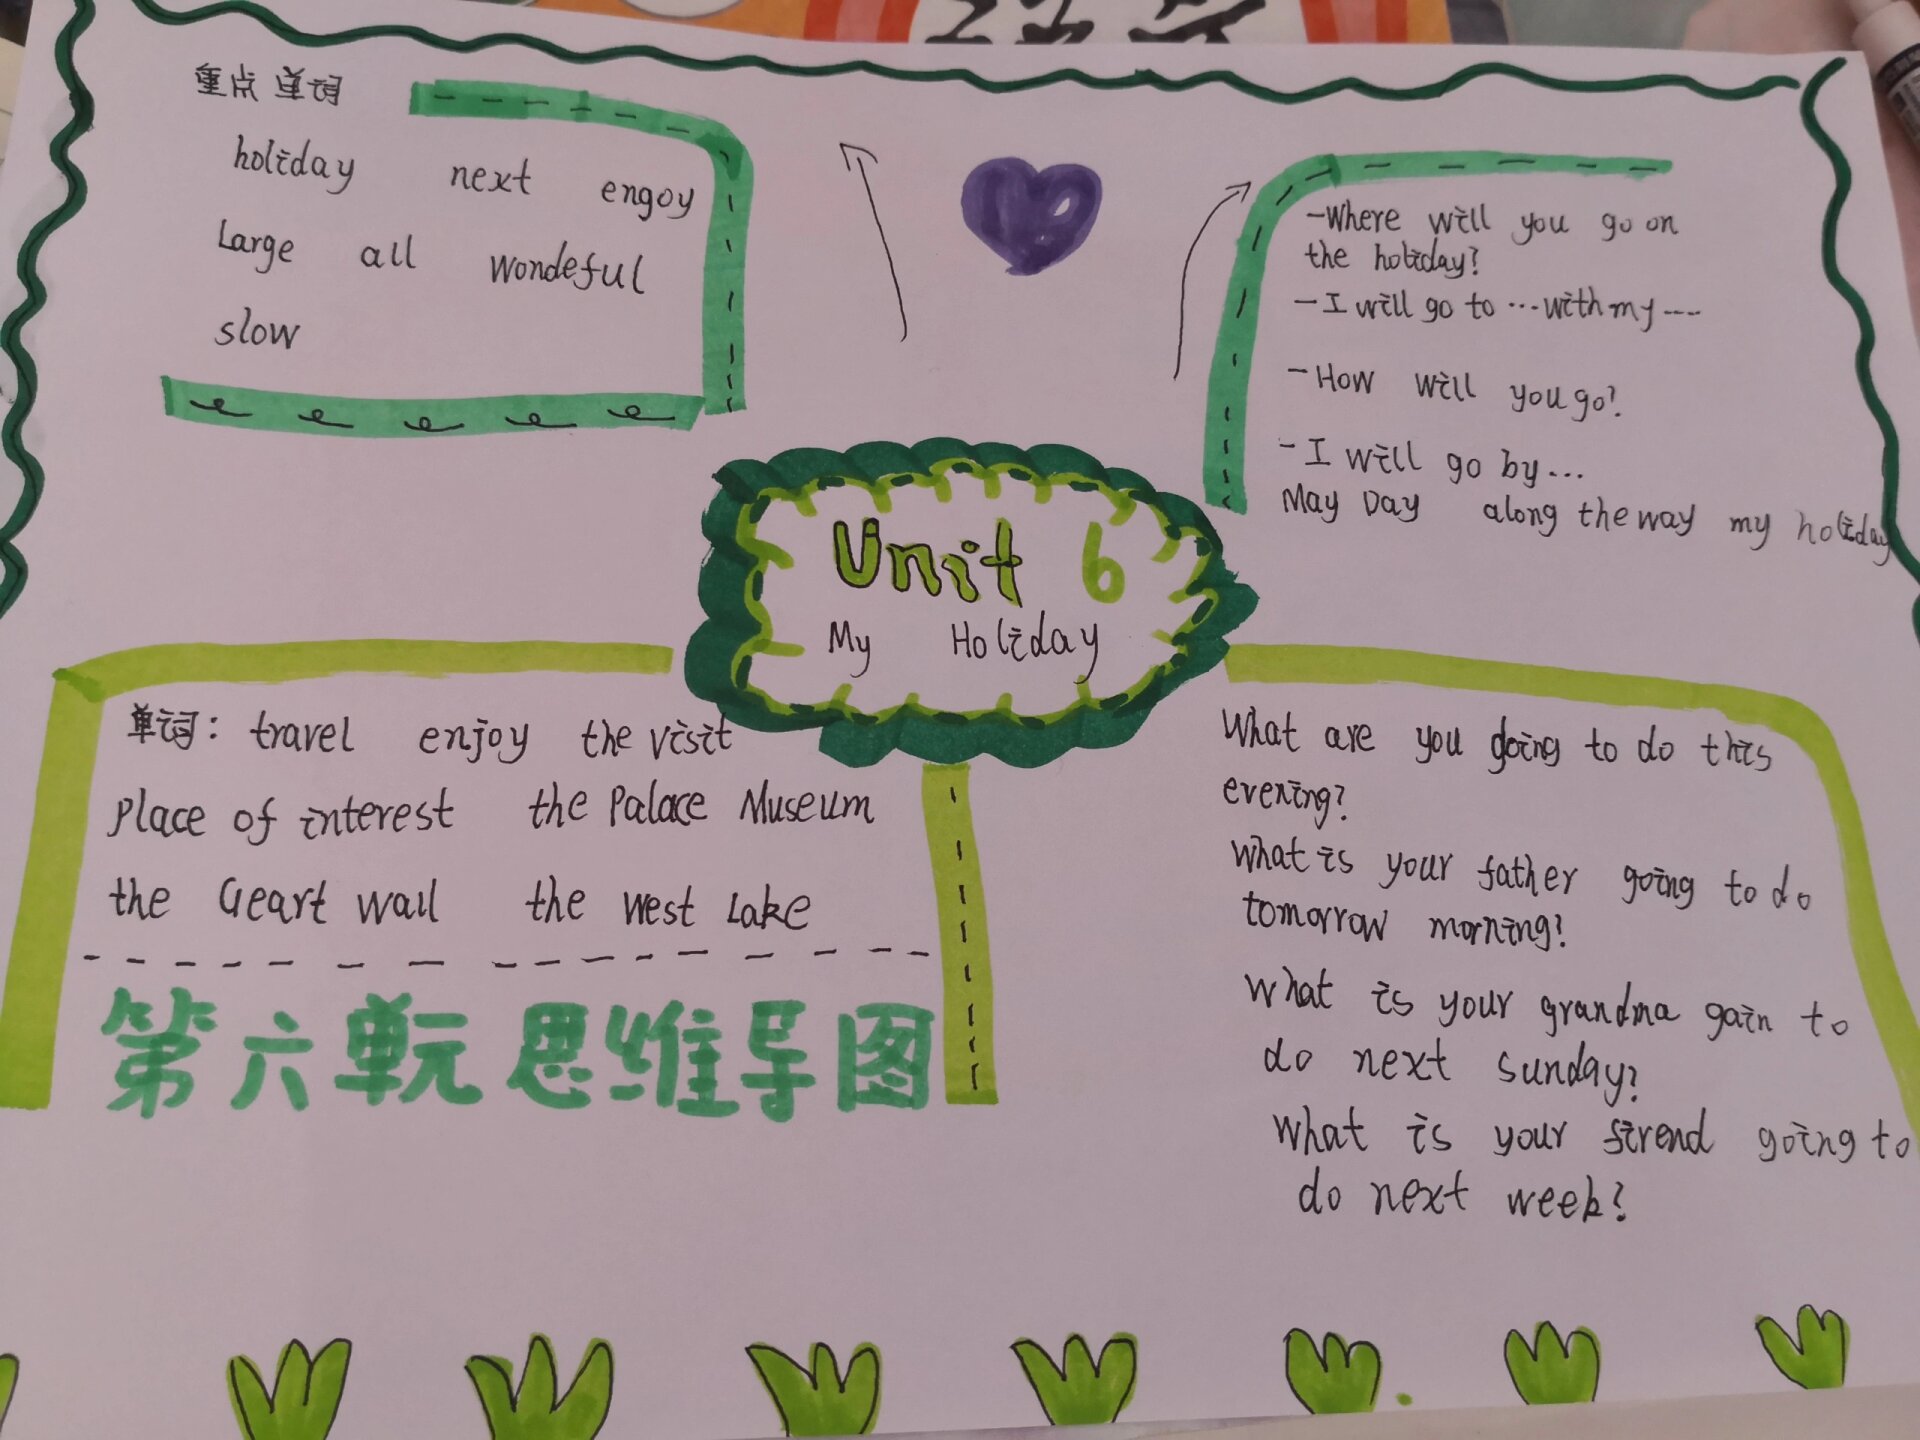 重点单词
holiday next engoy
Large all wondeful
slow
-Where will you go on
the holiday?
-I will go to ...with my ---
-How will you go?
-I will go by...
May Day along the way my holiday
Unit 6
My Holiday
单词: travel enjoy the visit
place of interest the Palace Museum
the Geart wall the west Lake
第六单元思维导图
What are you going to do this
evening?
What is your father going to do
tomorrow morning?
What is your grandma gain to
do next sunday?
What is your firend going to
do next week?